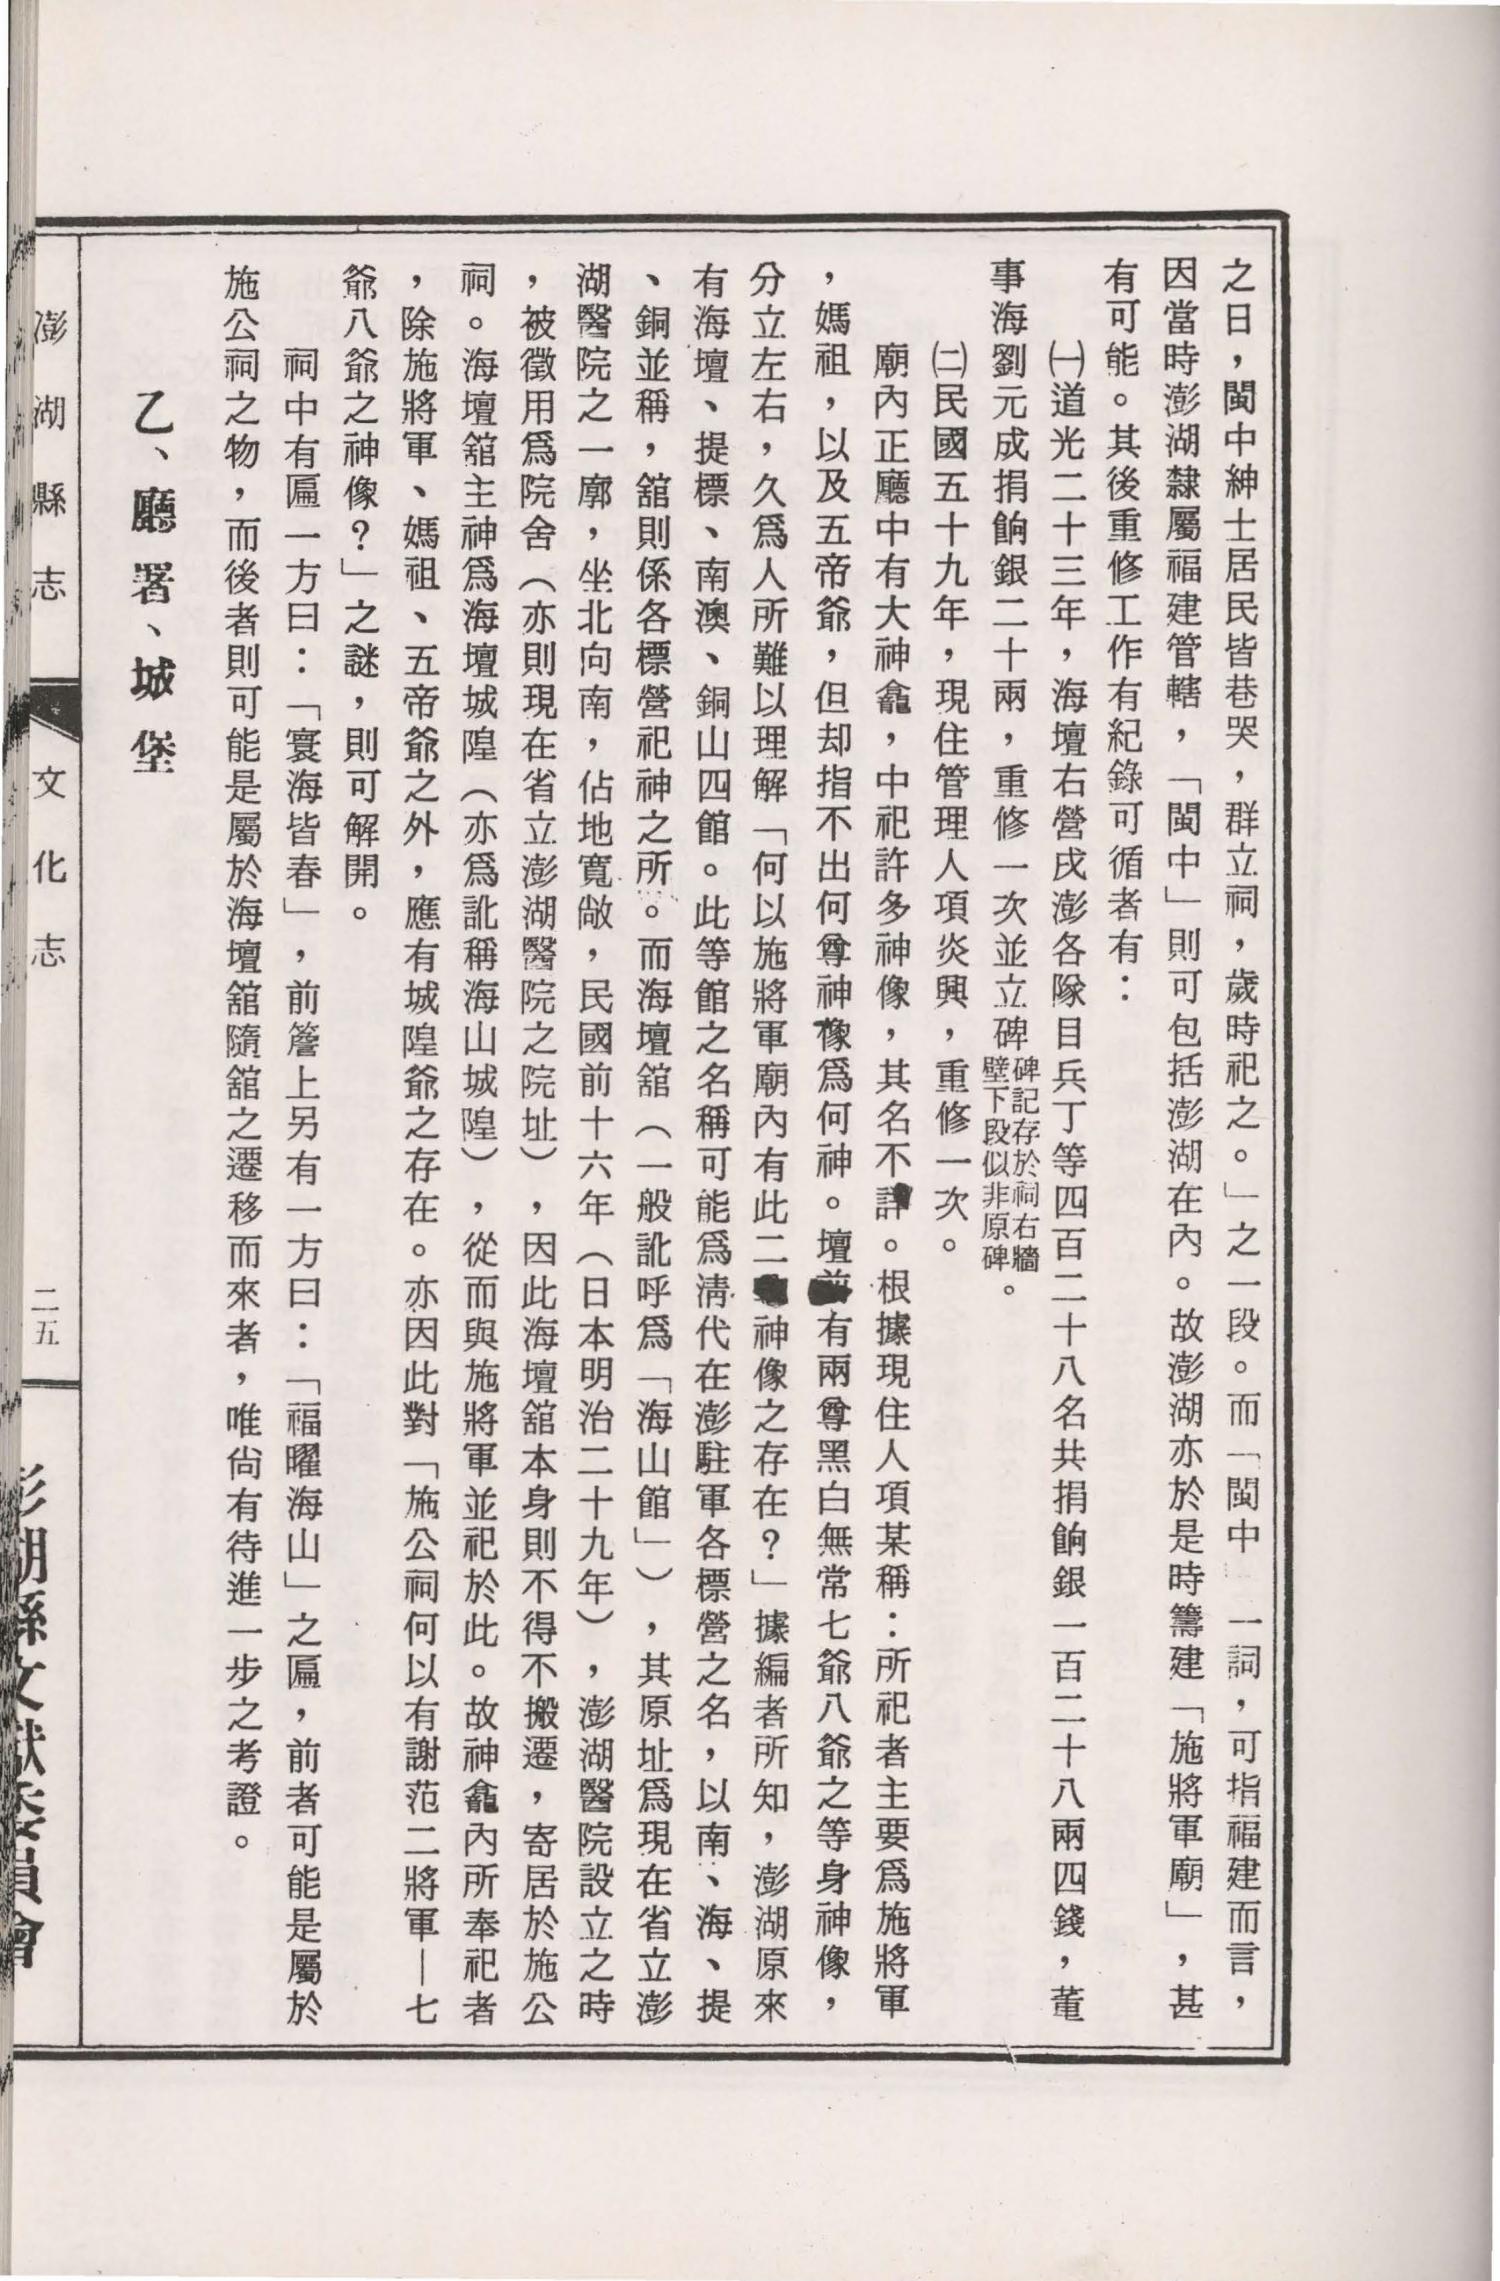 之日，閩中紳士居民皆巷哭，群立祠，歲時祀之。」之一段。而「閩中」一詞，可指福建而言，
因當時澎湖隸屬福建管轄，「閩中」則可包括澎湖在內。故澎湖亦於是時籌建「施將軍廟」，甚
有可能。其後重修工作有紀錄可循者有：
㈠道光二十三年，海壇右營戍澎各隊目兵丁等四百二十八名共捐餉銀一百二十八兩四錢，董
事海劉元成捐餉銀二十兩，重修一次並立碑碑記存於祠右牆壁下段似非原碑。
㈡民國五十九年，現住管理人項炎興，重修一次。
廟內正廳中有大神龕，中祀許多神像，其名不詳。根據現住人項某稱：所祀者主要為施將軍
，媽祖，以及五帝爺，但却指不出何尊神像為何神。壇前有兩尊黑白無常七爺八爺之等身神像，
分立左右，久為人所難以理解「何以施將軍廟內有此二神像之存在？」據編者所知，澎湖原來
有海壇、提標、南澳、銅山四館。此等館之名稱可能為清代在澎駐軍各標營之名，以南、海、提
、銅並稱，舘則係各標營祀神之所。而海壇舘（一般訛呼為「海山館」），其原址為現在省立澎
湖醫院之一廓，坐北向南，佔地寬敞，民國前十六年（日本明治二十九年），澎湖醫院設立之時
，被徵用為院舍（亦則現在省立澎湖醫院之院址），因此海壇舘本身則不得不搬遷，寄居於施公
祠。海壇舘主神為海壇城隍（亦為訛稱海山城隍），從而與施將軍並祀於此。故神龕內所奉祀者
，除施將軍、媽祖、五帝爺之外，應有城隍爺之存在。亦因此對「施公祠何以有謝范二將軍—七
爺八爺之神像？」之謎，則可解開。
祠中有匾一方曰：「寰海皆春」，前簷上另有一方曰：「福曜海山」之匾，前者可能是屬於
施公祠之物，而後者則可能是屬於海壇舘隨舘之遷移而來者，唯尙有待進一步之考證。
乙、廳署、城堡
澎湖縣志
文化志
二五
澎湖縣文獻委員會